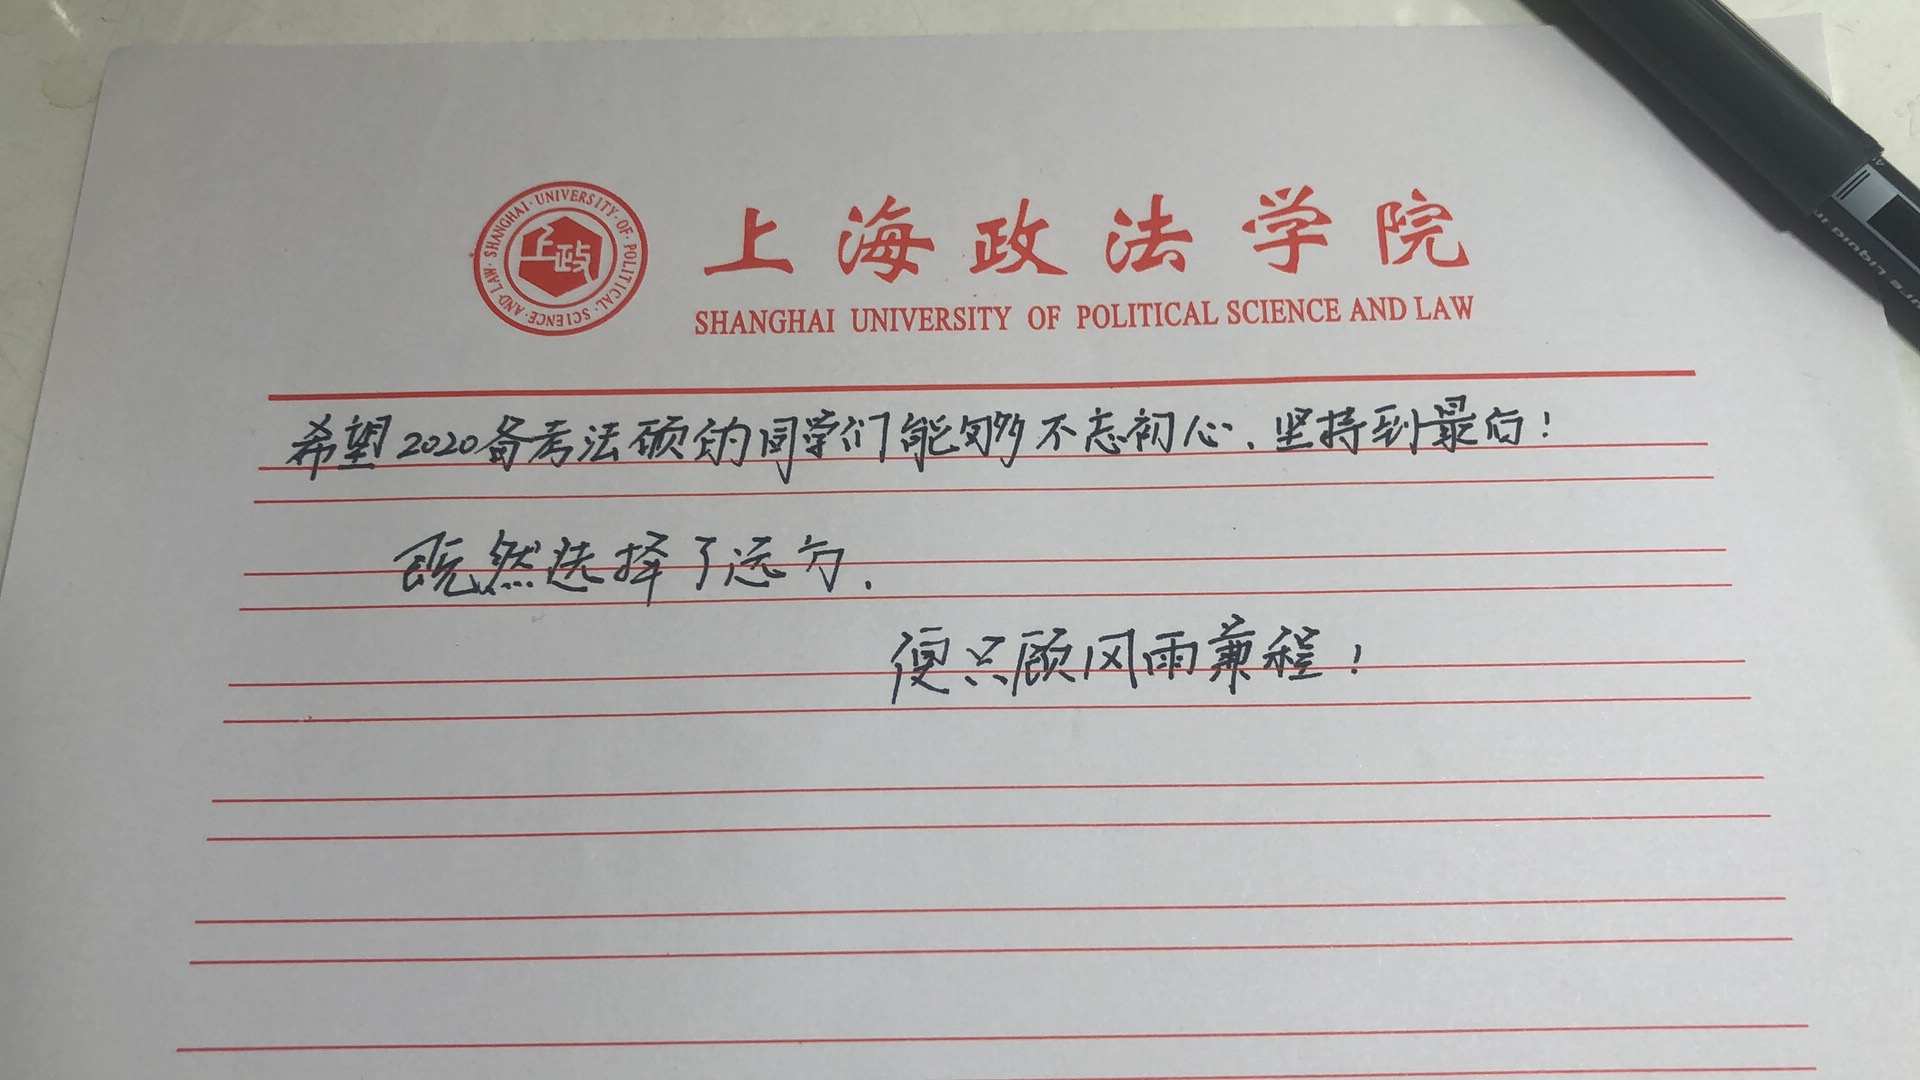 SHANGHAI·UNIVERSITY·OF·POLITICAL·SCIENCE·AND·LAW·
上政
上海政法学院
SHANGHAI UNIVERSITY OF POLITICAL SCIENCE AND LAW
希望2020备考法硕的同学们能够不忘初心,坚持到最后!
既然选择了远方,
便只顾风雨兼程!